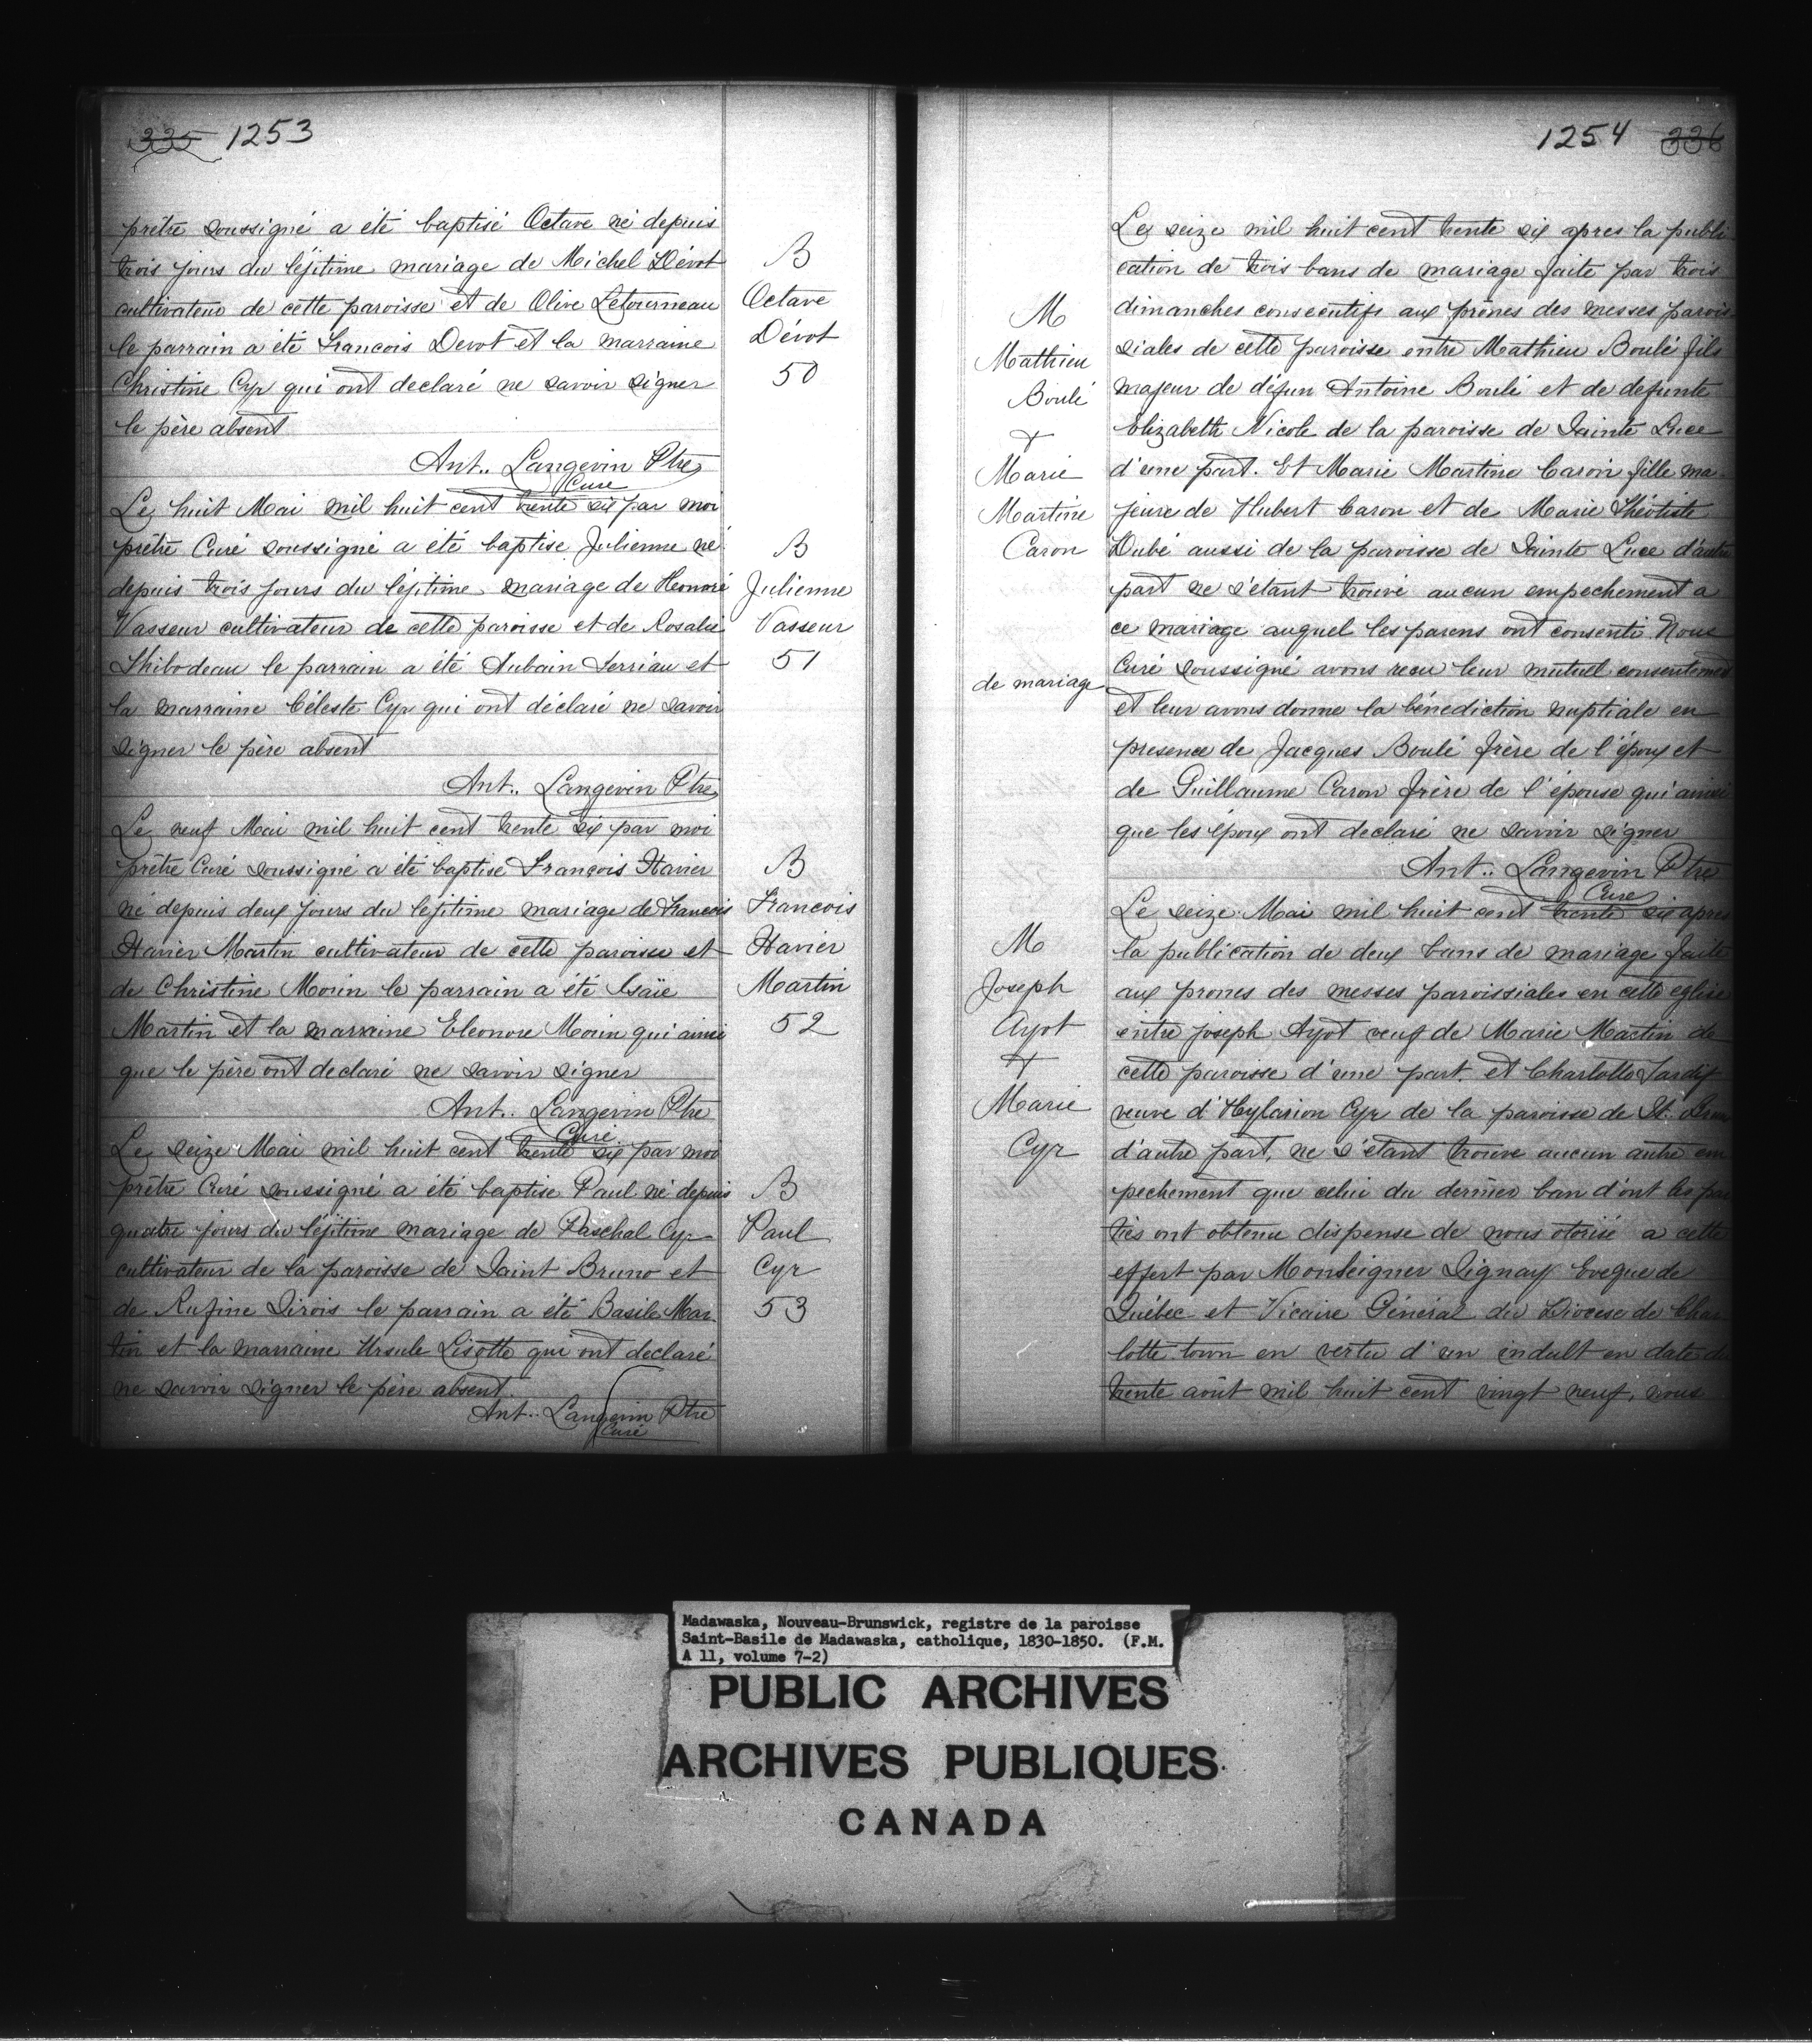 335 1253
prêtre soussigné a été baptisé Octave né depuis
trois jours du léjitime mariage de Michel Dévot
cultivateur de cette paroisse et de Olive Letourneau
le parrain a été Francois Devot et la marraine
Christine Cyr qui ont declaré ne savoir signer
le père absent
Ant.. Langevin Ptre
Curé
B
Octave
Dévot
50
Le huit Mai mil huit cent trente six par moi
prêtre Curé soussigné a été baptise Julienne né
depuis trois jours du léjitime mariage de Heonoré
Vasseur cultivateur de cette paroisse et de Rosalie
Thibodeau le parrain a été Aubain Terriau et
la marraine Céleste Cyr qui ont déclaré ne savoir
signer le père absent
Ant.. Langevin Ptre
B
Julienne
Vasseur
51
Le neuf Mai mil huit cent trente six par moi
prêtre Curé soussigné a été baptisé François Xavier
né depuis deux jours du léjitime mariage de Francois
Xavier Martin cultivateur de cette paroisse et
de Christine Morin le parrain a été Isaïe
Martin et la marraine Eleonore Morin qui ainsi
que le père ont declaré ne savoir signer
Ant.. Langevin Ptre
Curé
B
Francois
Xavier
Martin
52
Le seize Mai mil huit cent trente six par moi
prêtre Curé soussigné a été baptise Paul né depuis
quatre jours du léjitime mariage de Paschal Cyr
cultivateur de la paroisse de Saint Bruno et
de Rufine Sirois le parrain a été Basile Mar
tin et la marraine Ursule Lisotte qui ont declaré
ne savoir signer le père absent.
Ant.. Langevin Ptre
Curé
B
Paul
Cyr
53
1254 336
Le seize mil huit cent trente six apres la publi
cation de trois bans de mariage faite par trois
dimanches consecutifs aux prônes des messes parois
siales de cette paroisse entre Mathieu Boulé fils
majeur de défun Antoine Boulé et de defunte
Elizabeth Nicole de la paroisse de Sainte Luce
d'une part. Et Marie Martine Caron fille ma
jeure de Hubert Caron et de Marie Théotiste
Dubé aussi de la paroisse de Sainte Luce d'autre
part ne s'étant trouvé aucun empechement a
ce mariage auquel les parens ont consenti Nous
Curé soussigné avons recu leur mutuel consentement
et leur avons donne la bénediction nuptiale en
presence de Jacques Boulé frère de l'époux et
de Guillaume Caron frère de l'épouse qui ainsi
que les époux ont declaré ne savoir signer
Ant.. Langevin Ptre
Curé
M
Mathieu
Boulé
+
Marie
Martine
Caron
de mariage
Le seize Mai mil huit cent trente six apres
la publication de deux bans de mariage faite
aux prones des messes paroissiales en cette eglise
entre joseph Ayot veuf de Marie Martin de
cette paroisse d'une part. et Charlotte Tardif
veuve d'Hylarion Cyr de la paroisse de St. Brun
d'autre part, ne s'étant trouve aucun autre em
pechement que celui du dernier ban d'ont les par
ties ont obtenu dispense de nous otorisé a cette
effert par Monseigner Signay Eveque de
Québec et Vicaire Général du Diocese de Char
lotte town en vertu d'un indult en date du
trente août mil huit cent vingt neuf, nous
M
Joseph
Ayot
+
Marie
Cyr
Madawaska, Nouveau-Brunswick, registre de la paroisse
Saint-Basile de Madawaska, catholique, 1830-1850. (F.M.
A 11, volume 7-2)
PUBLIC ARCHIVES
ARCHIVES PUBLIQUES
CANADA